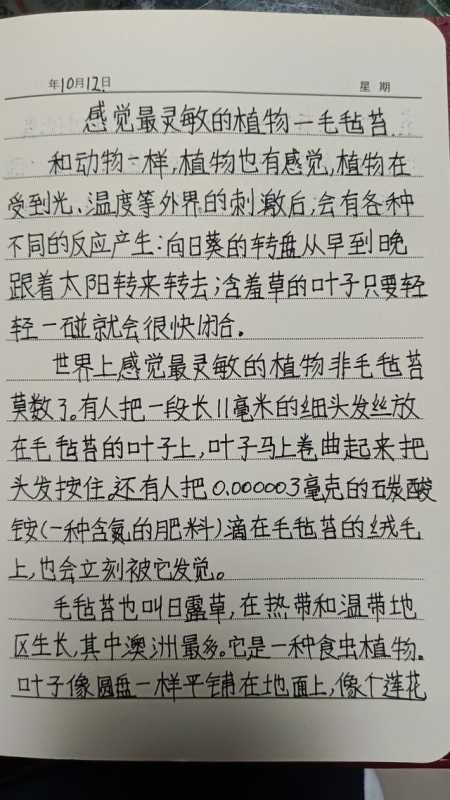 年10月12日 星期
感觉最灵敏的植物一毛毡苔.
和动物一样,植物也有感觉,植物在
受到光、温度等外界的刺激后,会有各种
不同的反应产生:向日葵的转盘从早到晚
跟着太阳转来转去;含羞草的叶子只要轻
轻一碰就会很快闭合。
世界上感觉最灵敏的植物非毛毡苔
莫数了。有人把一段长11毫米的细头发丝放
在毛毡苔的叶子上,叶子马上卷曲起来把
头发按住。还有人把0.000003毫克的碳酸
铵(一种含氮的肥料)滴在毛毡苔的绒毛
上,也会立刻被它发觉。
毛毡苔也叫日露草,在热带和温带地
区生长,其中澳洲最多。它是一种食虫植物。
叶子像圆盘一样平铺在地面上,像个莲花